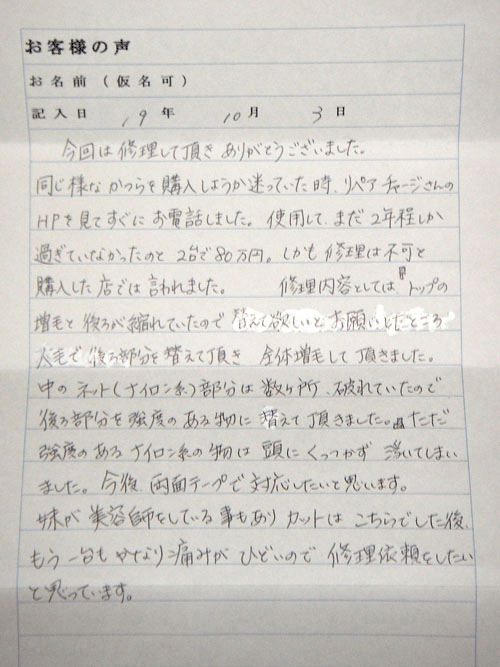 お客様の声
お名前(仮名可)
記入日 19年 10月 3日
今回は修理して頂きありがとうございました。
同じ様なかつらを購入しようか迷っていた時、リペアチャージさんの
HPを見てすぐにお電話しました。使用して、まだ2年程しか
過ぎていなかったのと 2台で80万円。しかも修理は不可と
購入した店では言われました。 修理内容としては トップの
増毛と後ろが縮れていたので 替えて欲しいとお願いしたところ
人毛で後ろ部分を替えて頂き 全体増毛して頂きました。
中のネット(ナイロン系)部分は数ヶ所、破れていたので
後ろ部分を強度のある物に替えて頂きました。ただ
強度のあるナイロン系の物は頭にくっつかず 浮いてしまい
ました。今後、両面テープで対応したいと思います。
妹が美容師をしている事もあり カットはこちらでした後、
もう一台もかなり痛みがひどいので 修理依頼をしたい
と思っています。